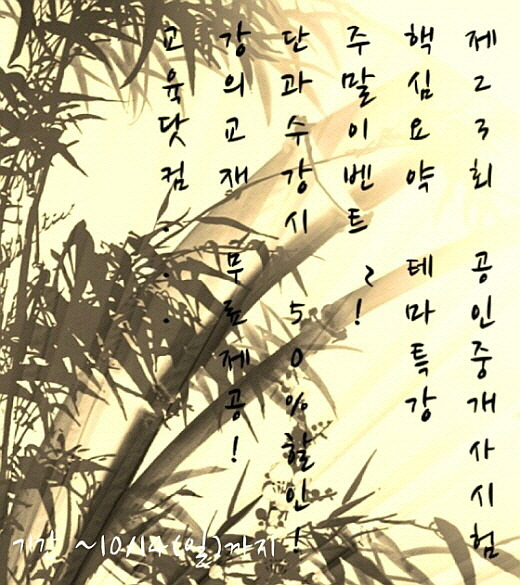 제23회 공인중개사시험
핵심요약 테마특강
주말이벤트 ~!
단과수강시 50%할인!
강의교재 무료제공!
교육닷컴...
기간 ~10시4(일)까지